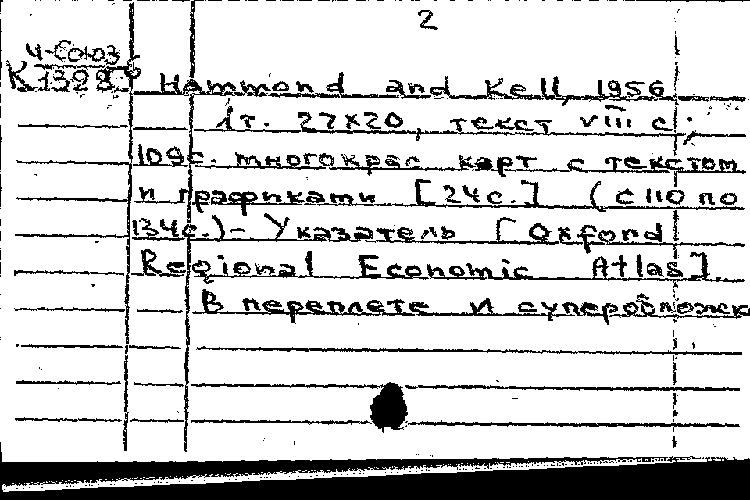 2
4-Союз
К 13286
Hammond and Kell, 1956
1т. 27x20, текст VIII с;
109с. многокрас карт с текстом
и графиками [24с.] (с 110 по
134с.) - Указатель [Oxford
Regional Economic Atlas].
В переплете и суперобложк